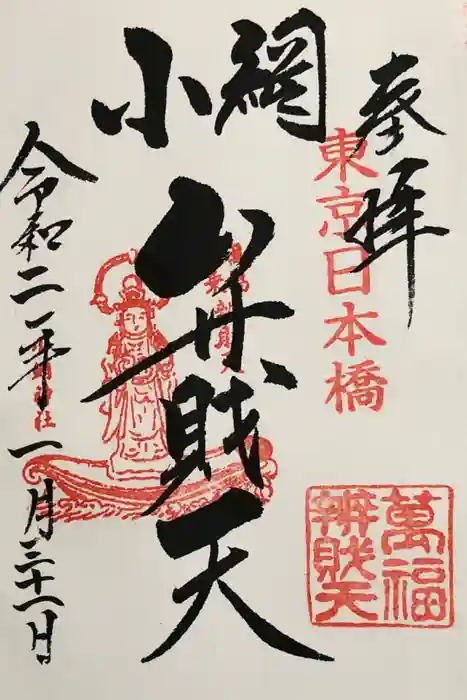 奉拝
東京日本橋
萬福
辨財天
小網
弁財天
令和二年
一月三十一日